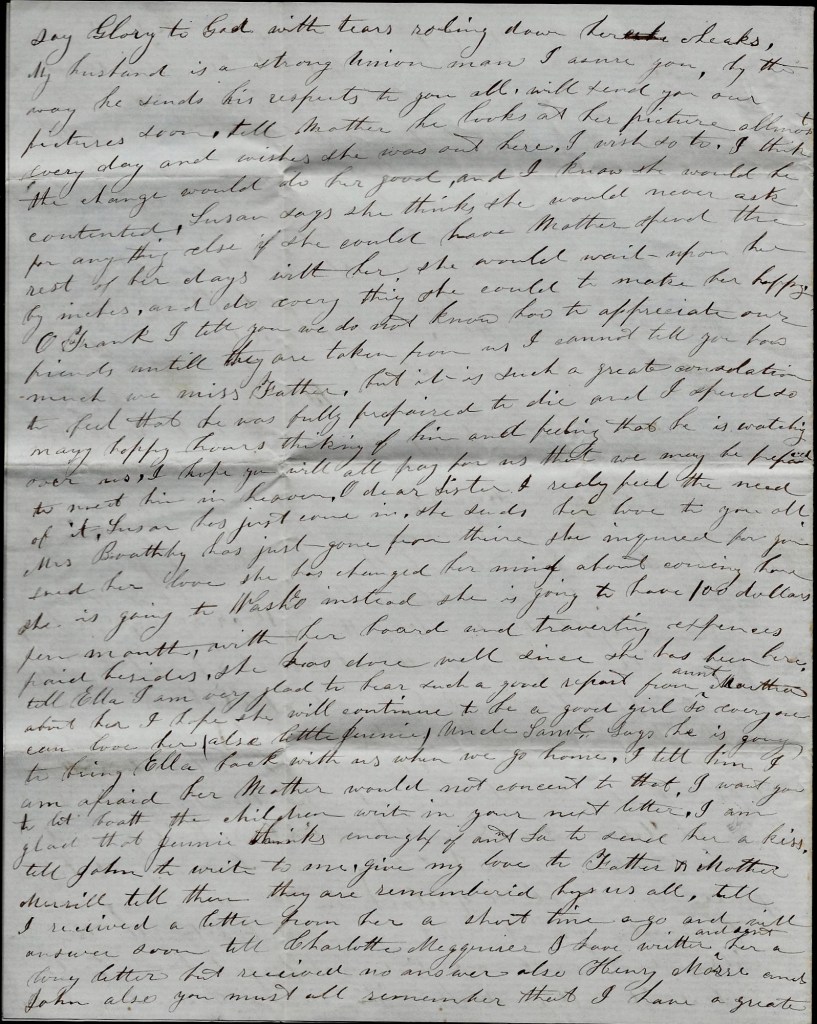 say Glory to God with tears roling down her cheaks,
My husband is a strong Union man I asure you, by the
way he sends his respects to you all. will send you our
pictures soon, tell Mother he looks at her picture allmost
every day and wishes she was out here. I wish so to. I think
the change would do her good, and I know she would be
contented, Susan says she thinks she would never ask
for any thig else if she could have Mother spend the
rest of her days with her she would wait upon her
by inches, and do every thig she could to make her happy.
O Frank I tell you we do not know how to appreciate our
friends untill they are taken from us I cannot tell you how
much we miss Father, but it is such a great consolation
to feel that he was fully prepaired to die and I spend so
many happy hours thiking of him and feeling that he is watchig
over us, I hope you will all pray for us that we may be prepaired
to meet him in heaven, O dear Sister I realy feel the need
of it, Susan has just come in. she sends her love to you all
Mrs Boathby has just gone from there she inquired for you
send her love she has changed her mind about coming home
she is going to Washo instead she is going to have 100 dollars
per month, with her board and traverling expences
paid besides, she has done well since she has been here.
tell Ella I am very glad to hear such a good report from aunt Martha
about her I hope she will continue to be a good girl so everyone
can love her (also little Jennie) Uncle Saml. says he is going
to bring Ella back with us when we go home. I tell him I
am afraid her Mother would not concent to that, I want you
to let boath the children write in your next letter, I am
glad that Jennie thinks enough of ant Sa to send her a kiss.
tell John to write to me, give my love to Father & Mother
Merrill tell them they are remembered by us all, tell
I recieved a letter from her a short time ago and will
answer soon tell Charlotte Megquier I have written and sent her a
long letter but received no answer also Henry Morse and
John also you must all remember that I have a greate